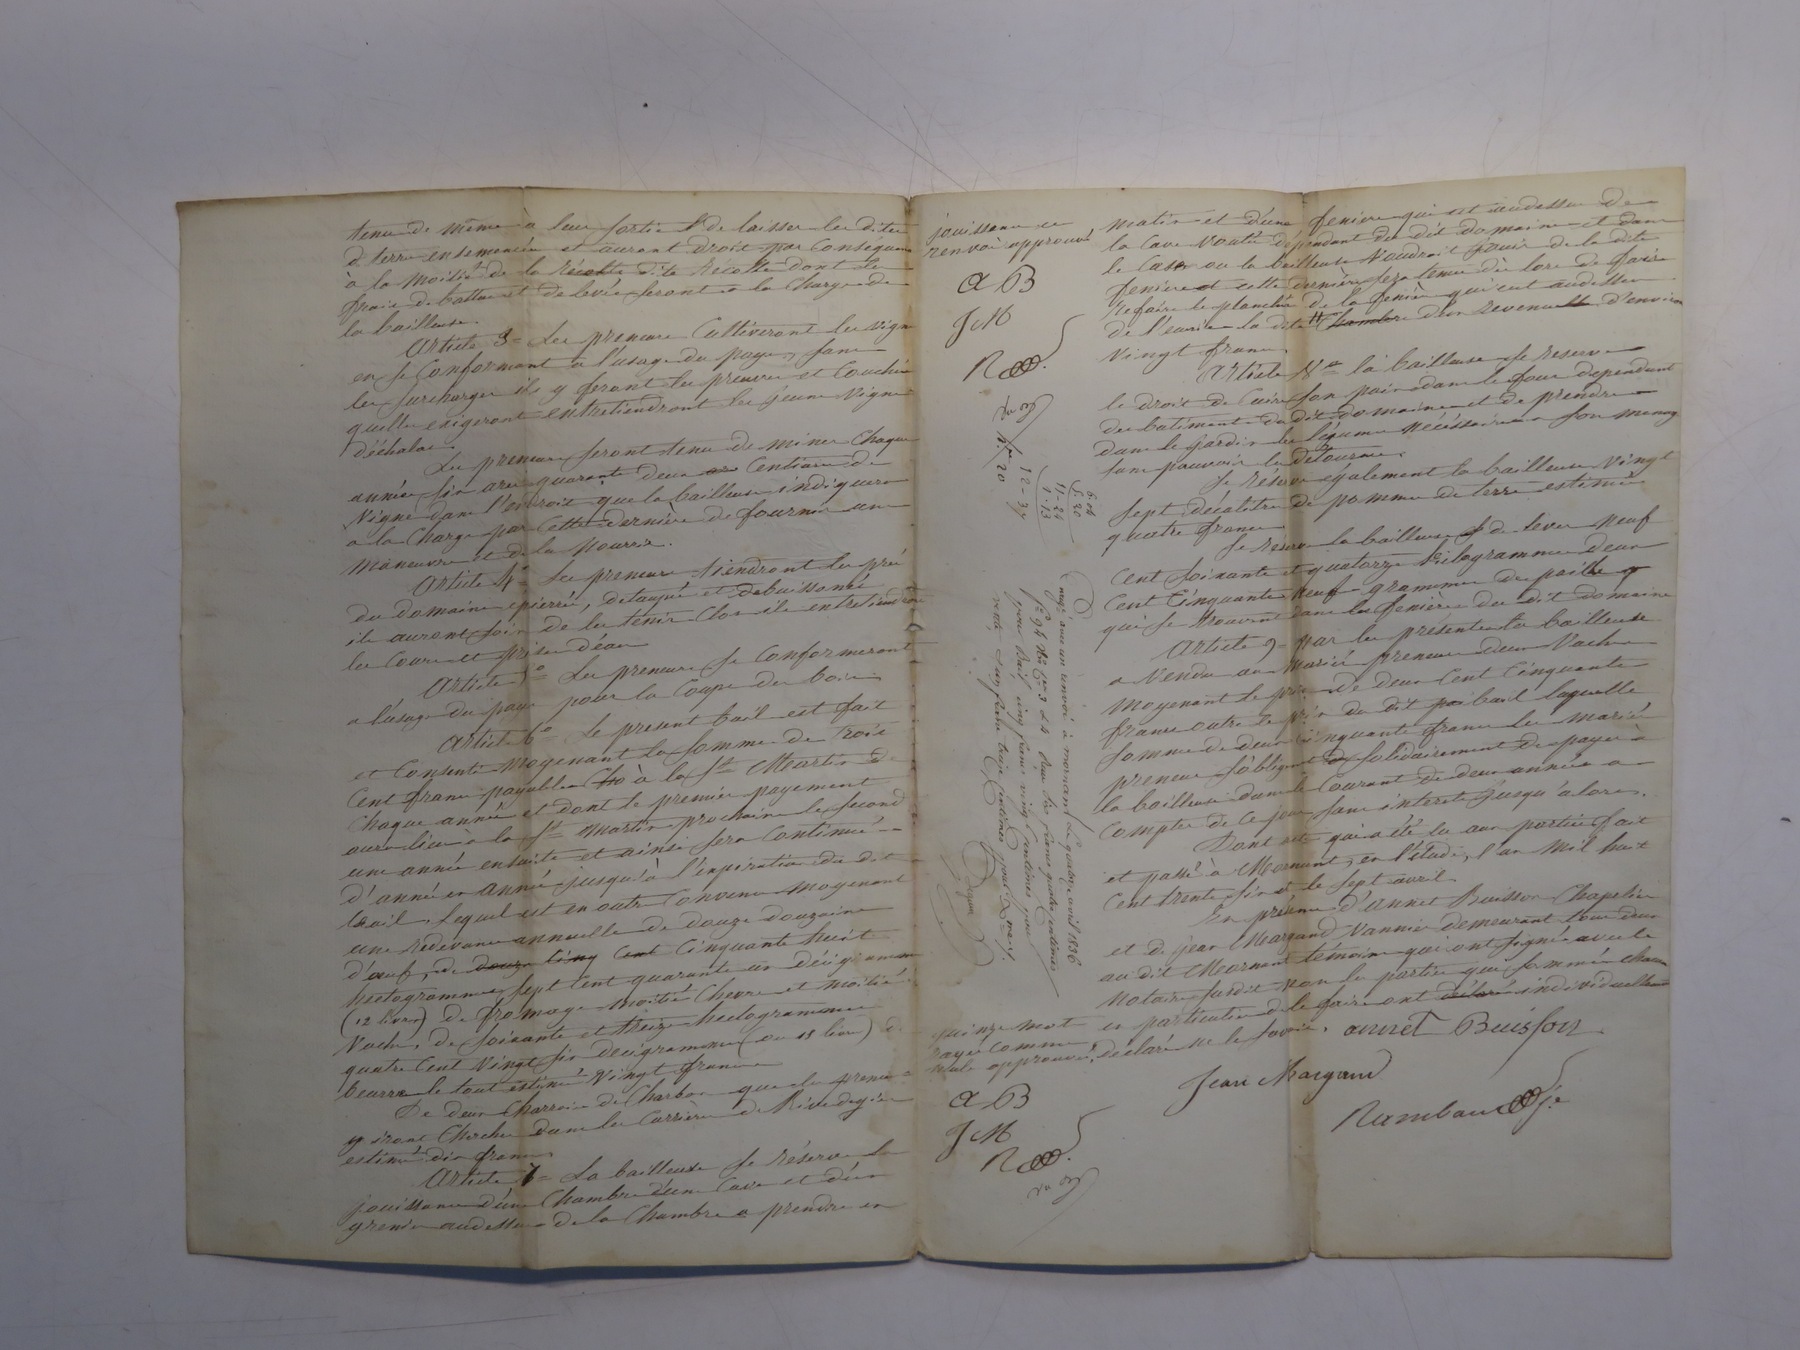 tenu de même à leur sortie de laisser les dites
d. terre ensemencée et auront droit par conséquent
à la moitié de la récolte dite récolte dont les
frais de batture et de levée seront à la charge de
la bailleuse.
Article 3= Les preneurs Cultiveront les vignes
en se Conformant à l'usage du pays, sans
les surcharger il y feront les preuves et Couchées
qu'elles exigeront entretiendront les jeunes vignes
d'échalas.
Les preneurs seront tenu de miner Chaque
année six ares quarante deux Centiares de
Vigne dans l'endroit que la bailleuse indiquera
a la Charge par Cette dernière de fournir un
manœuvre et de la nourrir.
Article 4= Les preneurs tiendront les prés
du domaine épierrés, détaupés et débuissonnés
ils auront soin de les tenir Clos ils entretiendront
les Cours et prises d'eau
Article 5° Les preneurs se Conformeront
a l'usage du pays pour la Coupe des bois
Article 6° Le present bail est fait
et Consenti moyenant la somme de trois
Cent francs payables à la St Martin de
Chaque année et dont le premier payement
aura lieu à la St Martin prochaine le second
une année ensuite et ainsi sera Continué
d'année en année jusqu'à l'expiration du dit
bail, lequel est en outre Convenu moyenant
une redevance annuelle de douze douzaine
d'œufs, de douze Cinq Cent Cinquante huit
hectogrammes sept Cent quarante un décigrammes
(12 livres) de fromage moitié Chevre et moitié
Vache, de soixante et treize hectogrammes
quatre Cent Vingt six decigrammes (ou 15 livres) de
beurre le tout estimé Vingt francs
De deux Charrois de Charbon que les preneurs
y iront Chercher dans les Carrières de Rivedegier
estimé dix francs
Article 7= La bailleuse se réserve la
jouissance d'une Chambre d'une Cave et d'un
grenier audessus de la Chambre a prendre en
jouissance ce
renvoi approuvé
a B
J M
R
12 - 37
6.04
5.20
11 - 24
1 - 13
Enregé avec un renvoi à mornant le quatorze avril 1836
quinze mots
rayés comme
nuls approuvés.
a B
J M
R
matin et d'une feniere qui est audessus de
la Cave voutée dépendant du dit domaine et dans
le Cas où la bailleuse Voudroit jouir de la dite
feniere cette dernière sera tenu dès lors de faire
refaire le planché de la fenière qui est audessus
de l'écurie la dite Chambre d'un revenu d'environ
vingt francs.
Article 8= la bailleuse se reserve
le droit de Cuire son pain dans le four dependant
des batiments du dit domaine et de prendre
dans le jardin les légumes nécessaires a son menage
sans pouvoir les détourner.
Se réserve également la bailleuse Vingt
sept décalitres de pommes de terre estimés
quatre francs
Se réserve la bailleuse de lever neuf
Cent soixante et quatorze kilogrammes deux
Cent Cinquante neuf grammes de paille
qui se trouvent dans la fenière du dit domaine
Article 9= par les présentes la bailleuse
a Vendu aux mariés preneurs deux Vaches
moyenant le prix de deux Cent Cinquante
francs outre le prix du dit bail laquelle
somme de deux Cinquante francs les mariés
preneurs s'obligent solidairement de payer à
la bailleuse dans le Courant de deux années a
Compter de ce jour sans interets jusqu'alors.
Dont acte qui a été lu aux parties fait
et passé à Mornant, en l'étude, l'an mil huit
Cent trente six et le sept avril
En présence d'annet Buisson Chapelier
et de jean Margand Vannier demeurant tous deux
au dit Mornant témoins qui ont signé avec le
Notaire susdit non les parties qui sommées chacune
en particulier de le faire ont déclaré individuellement
déclaré ne le savoir. annet Buisson
Jean Margand
Rambaud